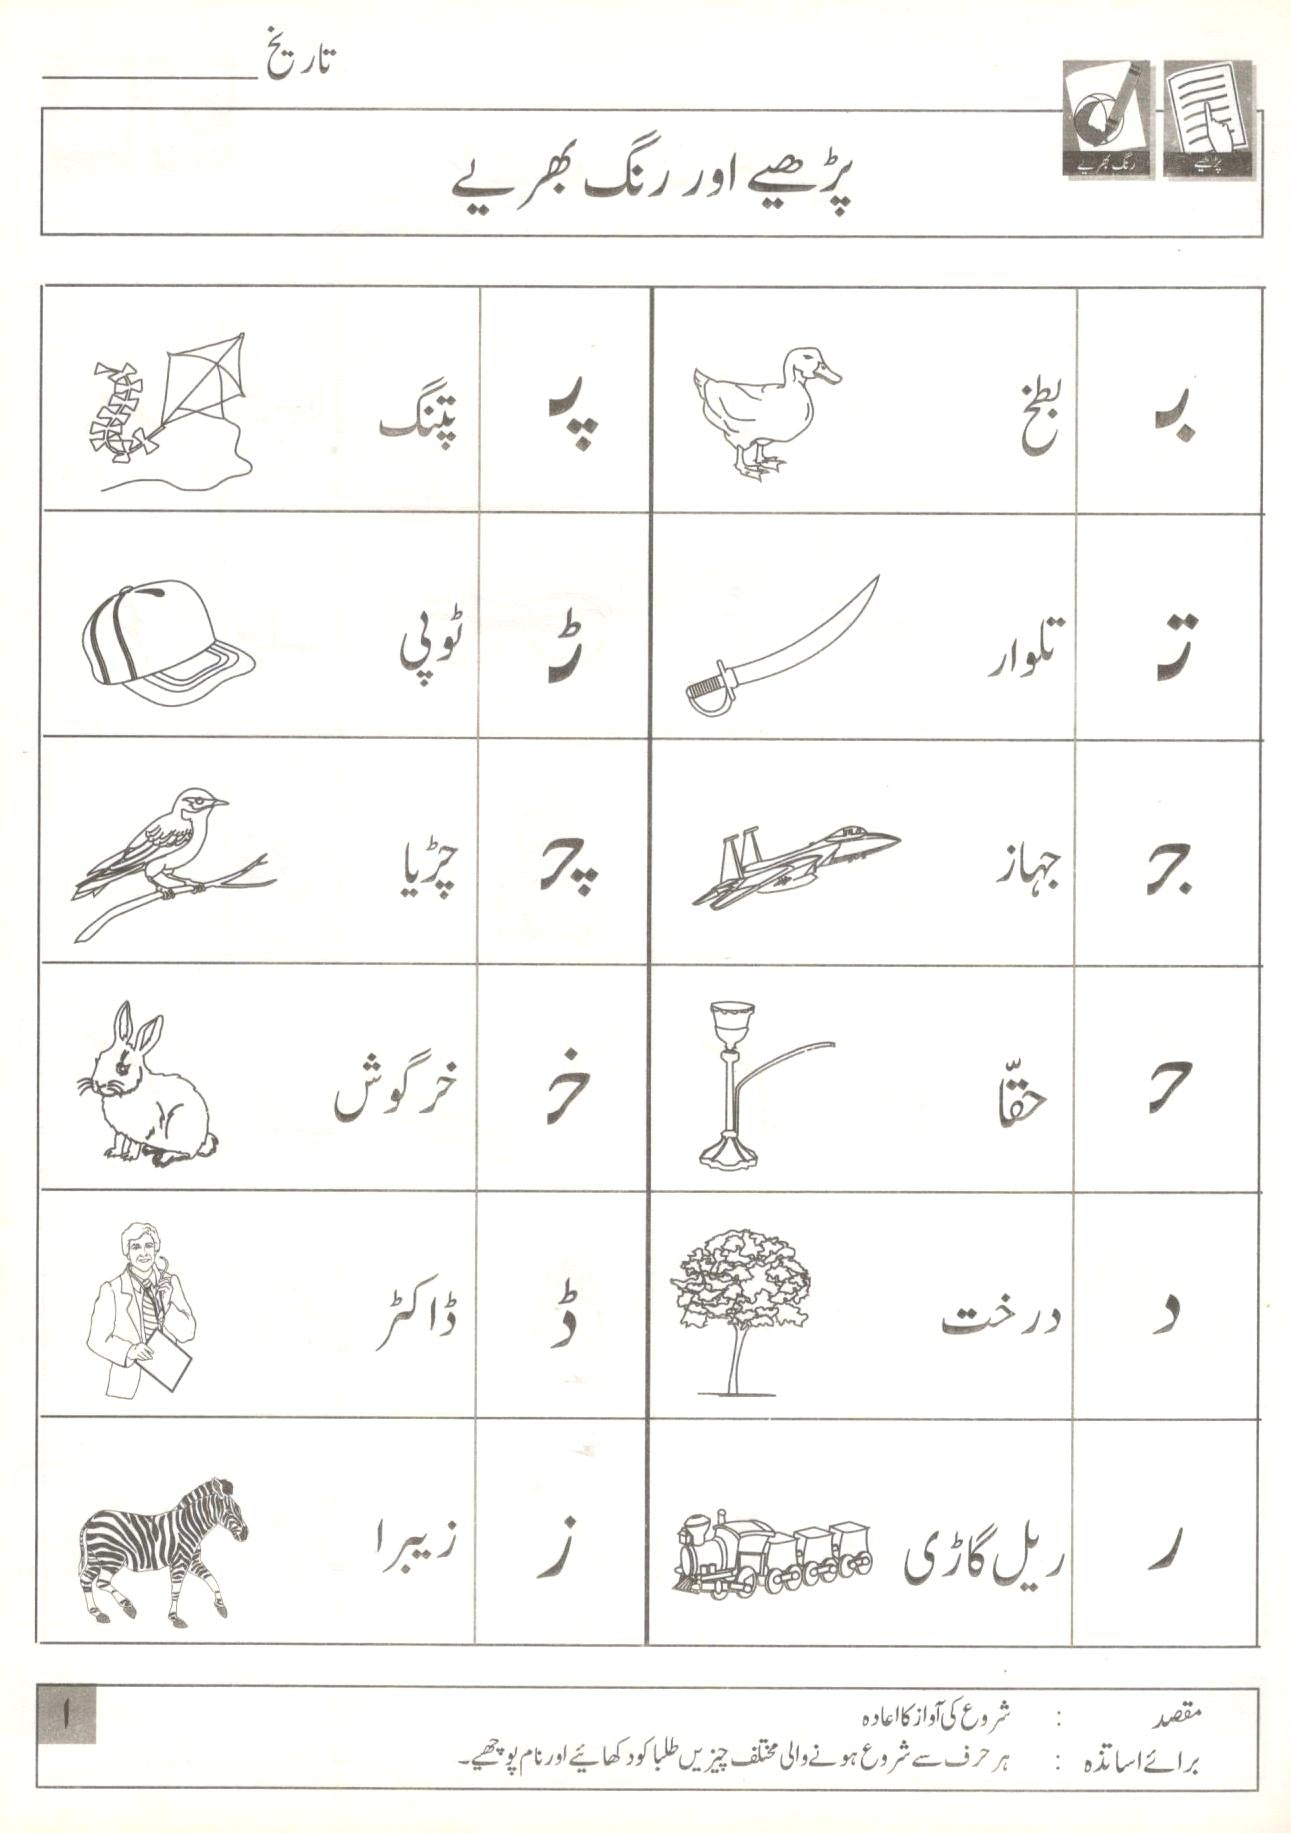 تاریخ
رنگ بھریے
پڑھیے
پڑھیے اور رنگ بھریے
بر بطخ پر پتنگ
تر تلوار ٹر ٹوپی
جر جہاز چر چڑیا
حر حقّا خر خرگوش
د درخت ڈ ڈاکٹر
ر ریل گاڑی ز زیبرا
مقصد : شروع کی آواز کا اعادہ
برائے اساتذہ : ہر حرف سے شروع ہونے والی مختلف چیزیں طلبا کو دکھائیے اور نام پوچھیے۔
۱